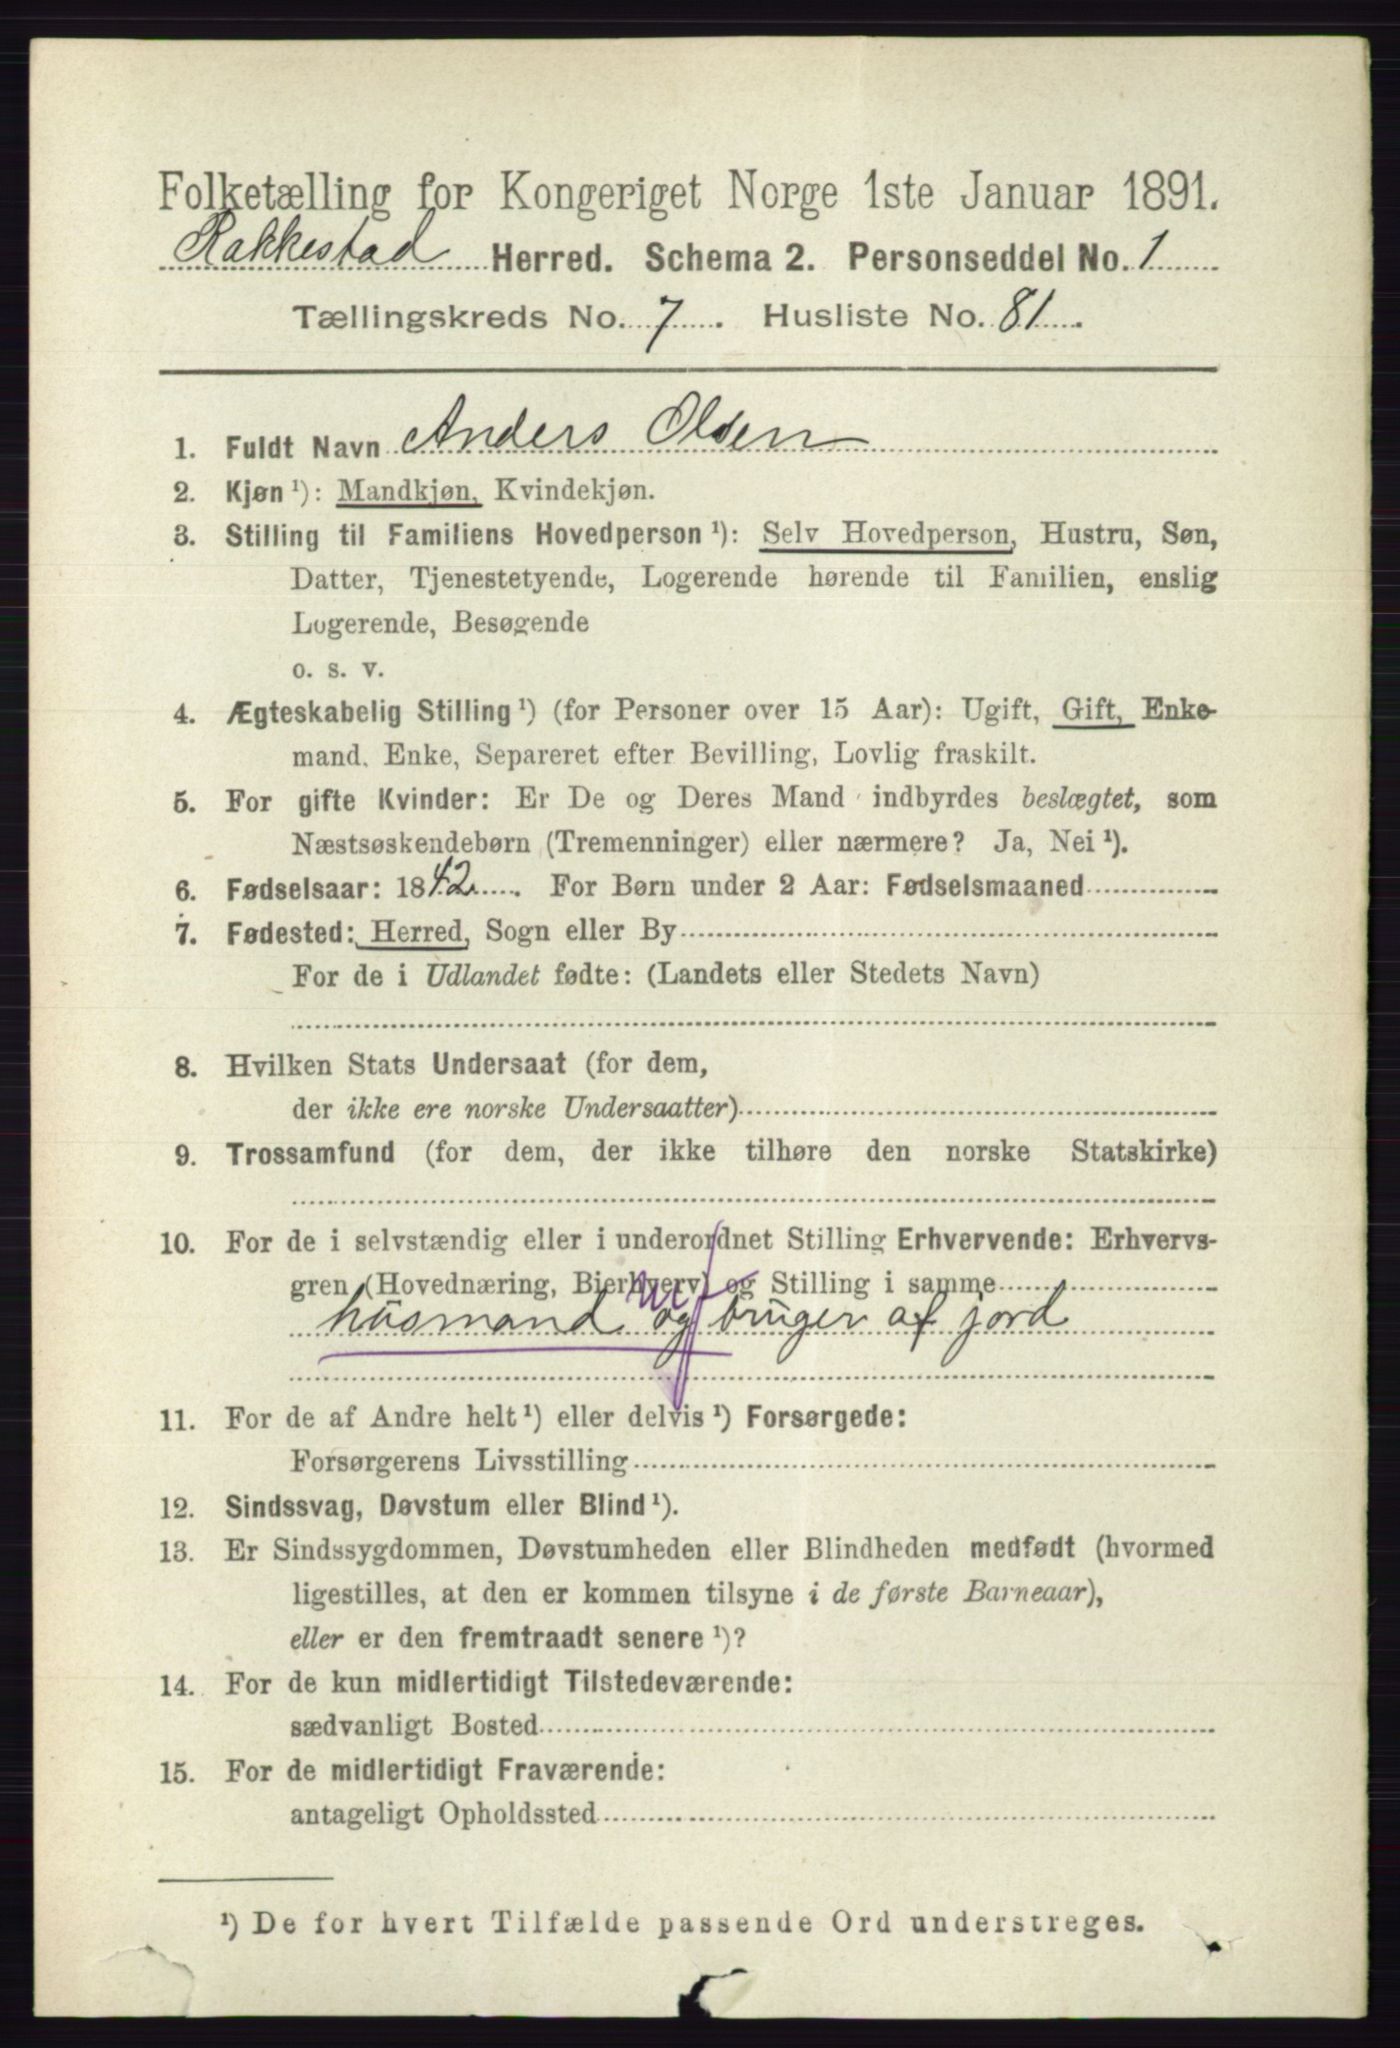 Folketælling for Kongeriget Norge 1ste Januar 1891.
Rakkestad Herred. Schema 2. Personseddel No. 1
Tællingskreds No. 7. Husliste No. 81.
1. Fuldt Navn Anders Olsen
2. Kjøn ¹): Mandkjøn, Kvindekjøn.
3. Stilling til Familiens Hovedperson ¹): Selv Hovedperson, Hustru, Søn,
Datter, Tjenestetyende, Logerende hørende til Familien, enslig
Logerende, Besøgende
o. s. v.
4. Ægteskabelig Stilling ¹) (for Personer over 15 Aar): Ugift, Gift, Enke-
mand, Enke, Separeret efter Bevilling, Lovlig fraskilt.
5. For gifte Kvinder: Er De og Deres Mand indbyrdes beslægtet, som
Næstsøskendebørn (Tremenninger) eller nærmere? Ja, Nei ¹).
6. Fødselsaar: 1842. For Børn under 2 Aar: Fødselsmaaned
7. Fødested: Herred, Sogn eller By
For de i Udlandet fødte: (Landets eller Stedets Navn)
8. Hvilken Stats Undersaat (for dem,
der ikke ere norske Undersaatter)
9. Trossamfund (for dem, der ikke tilhøre den norske Statskirke)
10. For de i selvstændig eller i underordnet Stilling Erhvervende: Erhvervs-
gren (Hovednæring, Bierhverv) og Stilling i samme
husmand og bruger af jord
11. For de af Andre helt ¹) eller delvis ¹) Forsørgede:
Forsørgerens Livsstilling
12. Sindssvag, Døvstum eller Blind ¹).
13. Er Sindssygdommen, Døvstumheden eller Blindheden medfødt (hvormed
ligestilles, at den er kommen tilsyne i de første Barneaar),
eller er den fremtraadt senere ¹)?
14. For de kun midlertidigt Tilstedeværende:
sædvanligt Bosted
15. For de midlertidigt Fraværende:
antageligt Opholdssted
¹) De for hvert Tilfælde passende Ord understreges.